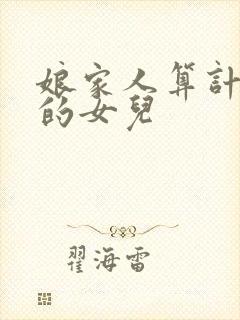 娘家人算計
的女兒
翟海雷